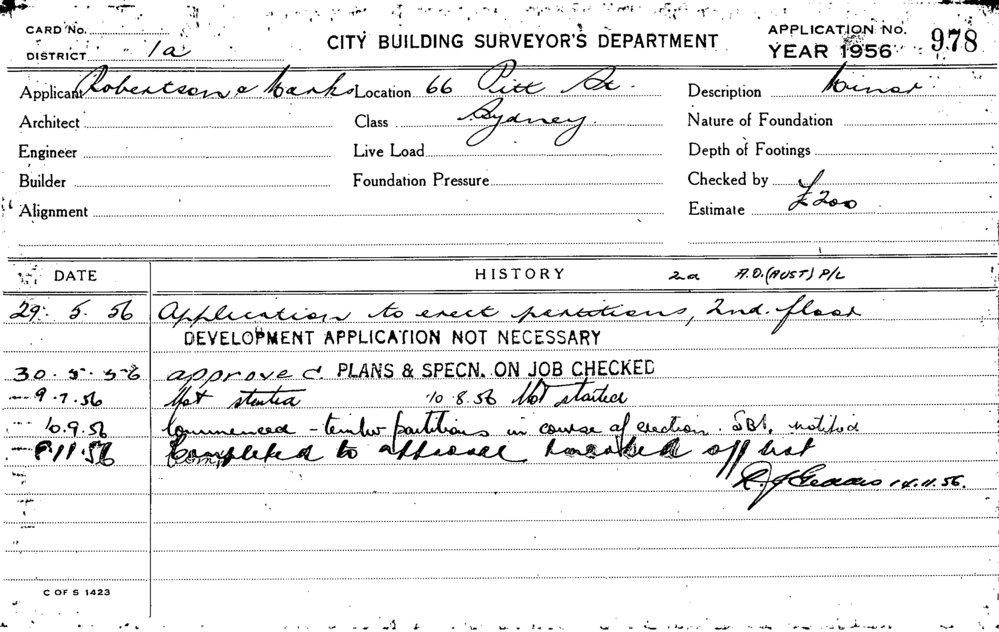 CARD No.
DISTRICT 1a
CITY BUILDING SURVEYOR'S DEPARTMENT
APPLICATION No. 978
YEAR 1956
Applicant Robertson & Marks Location 66 Pitt St. Description Minor
Architect Class Sydney. Nature of Foundation
Engineer Live Load Depth of Footings
Builder Foundation Pressure Checked by
Alignment Estimate £200
DATE HISTORY 2a A.D.(AUST) P/L
29. 5. 56 Application to erect partitions, 2nd. floor
DEVELOPMENT APPLICATION NOT NECESSARY
30. 5. 56 approved. PLANS & SPECN. ON JOB CHECKED
9.7.56 Not started 10.8.56 Not started
10.9.56 Commenced - timber partitions in course of erection. SBI. notified
11.56 Completed to approval off list
14.11.56.
C OF S 1423